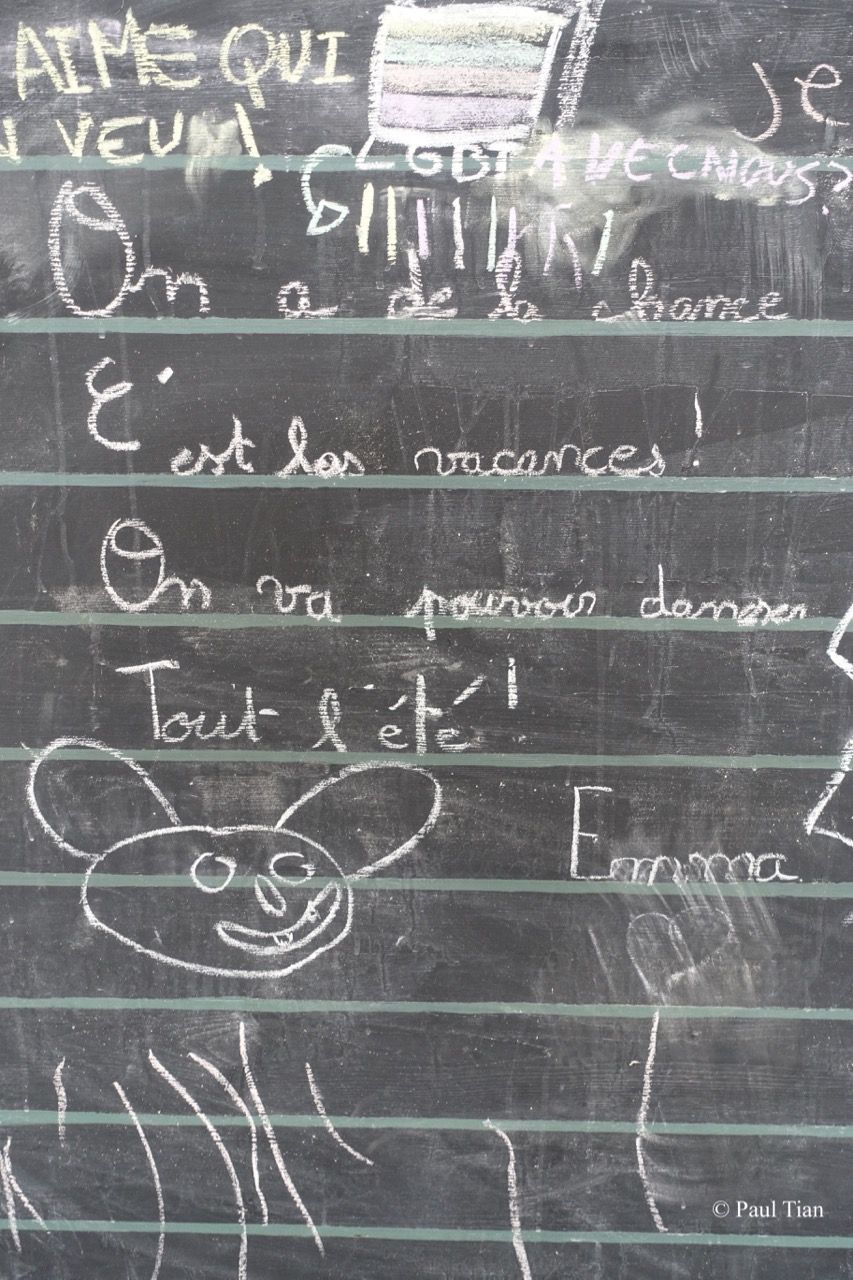 AIME QUI Je
VEUX !
LGBT AVEC NOUS
On a de la chance
C'est las vacances !
On va pouvoir danser
Tout l'été !
Emma
© Paul Tian